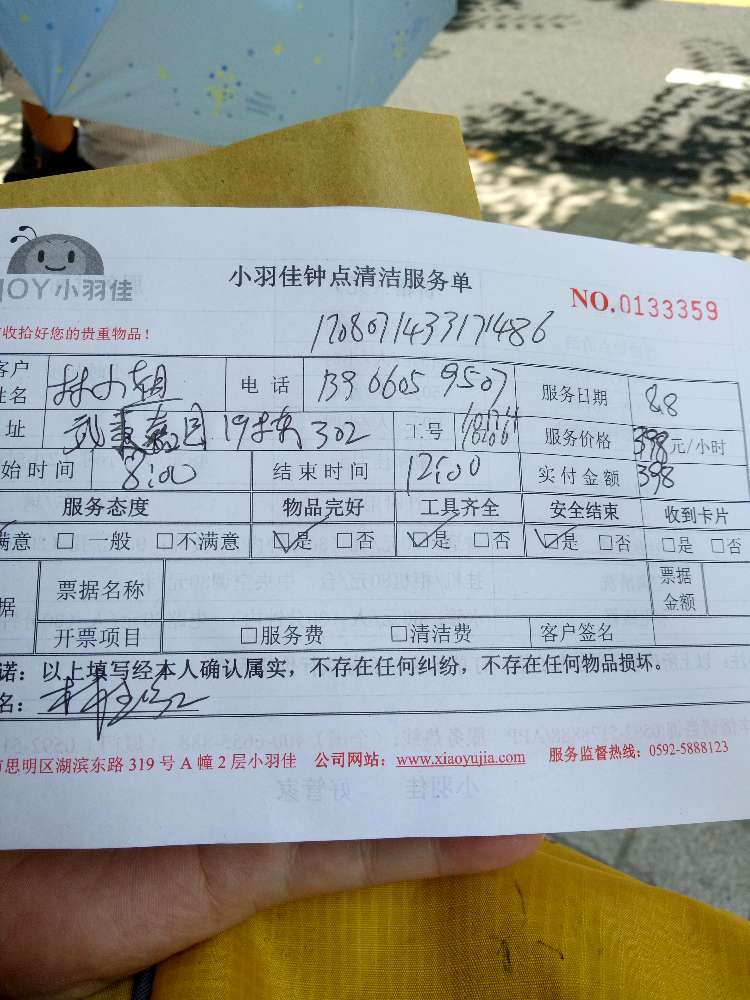 小羽佳钟点清洁服务单
JOY小羽佳
NO.0133359
收拾好您的贵重物品！
1708071433171486
客户姓名 电话 139 6605 9507 服务日期 8.8
址 19栋302 工号 服务价格 398元/小时
始时间 8:00 结束时间 12:00 实付金额 398
服务态度 物品完好 工具齐全 安全结束 收到卡片
满意 □ 一般 □不满意 ☑是 □否 ☑是 □否 ☑是 □否 □是 □否
据 票据名称 票据金额
开票项目 □服务费 □清洁费 客户签名
诺：以上填写经本人确认属实，不存在任何纠纷，不存在任何物品损坏。
名：
市思明区湖滨东路 319 号 A 幢 2 层小羽佳 公司网站：www.xiaoyujia.com 服务监督热线：0592-5888123